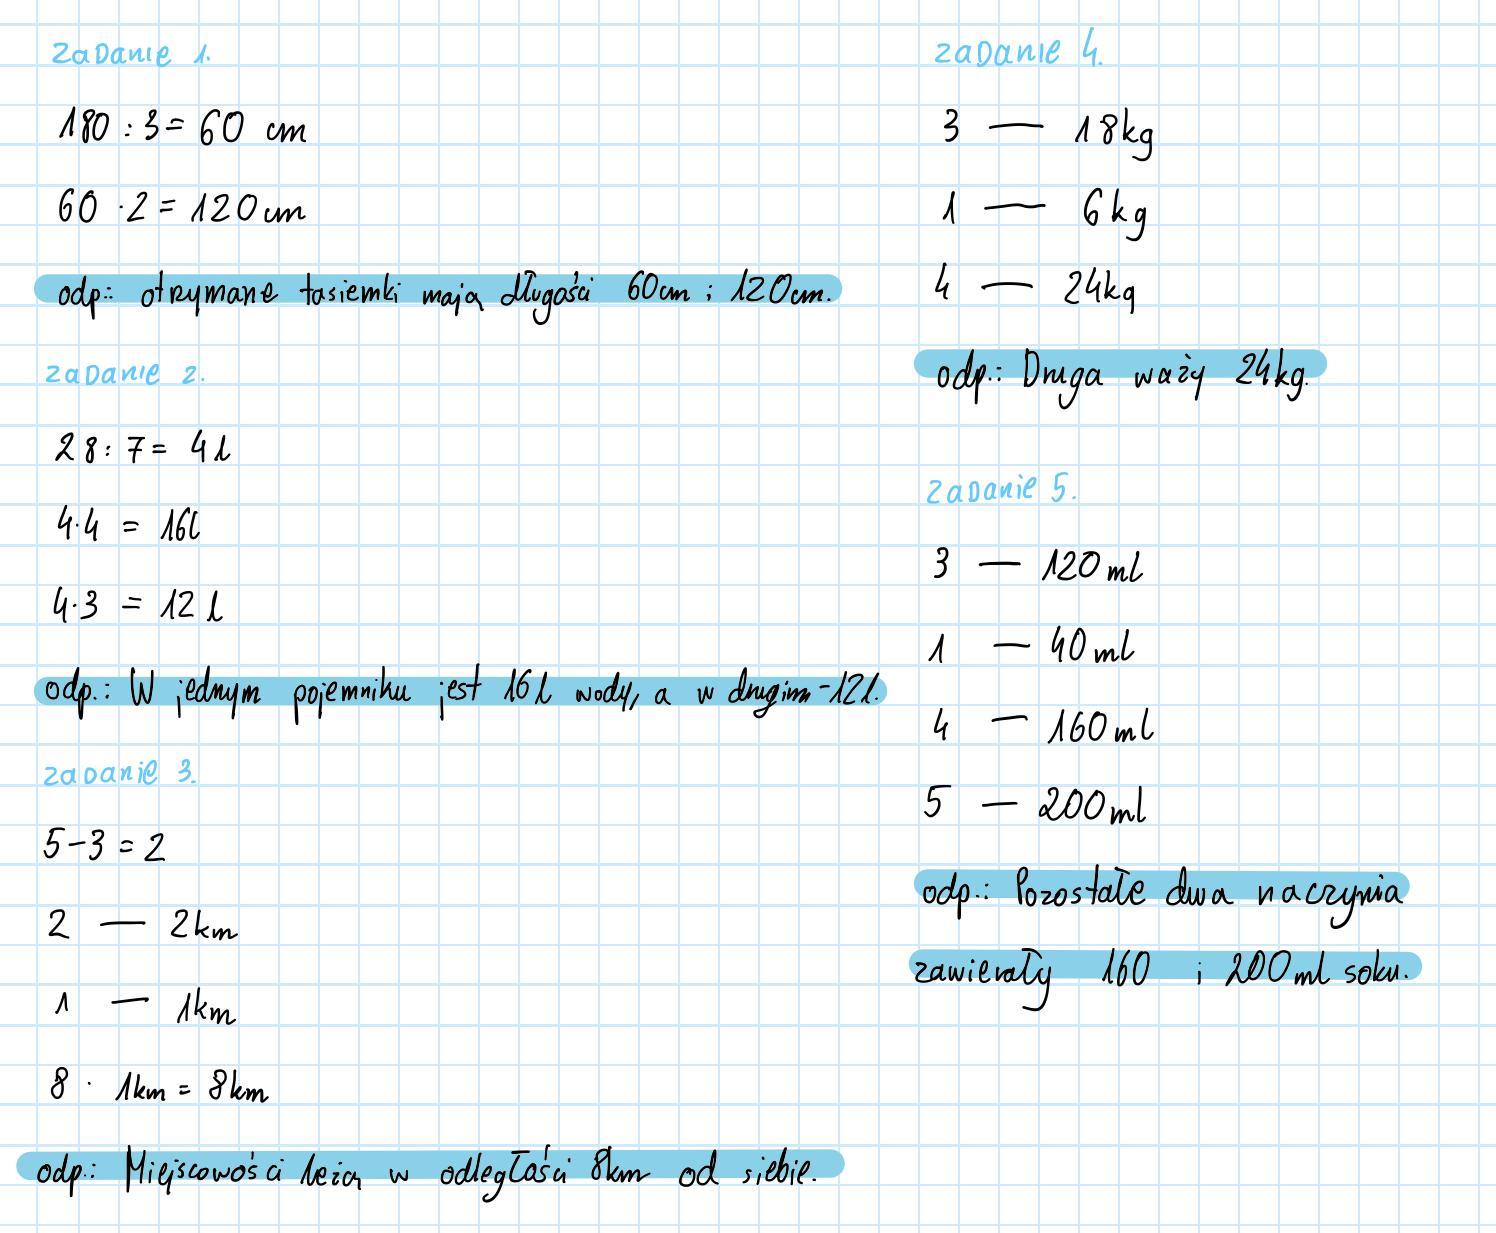 zadanie 1.
180 : 3 = 60 cm
60 · 2 = 120 cm
odp.: otrzymane tasiemki mają długości 60cm i 120cm.
zadanie 2.
28 : 7 = 4 l
4·4 = 16l
4·3 = 12 l
odp.: W jednym pojemniku jest 16 l wody, a w drugim - 12 l.
zadanie 3.
5 - 3 = 2
2 — 2km
1 — 1km
8 · 1km = 8km
odp.: Miejscowości leżą w odległości 8km od siebie.
zadanie 4.
3 — 18kg
1 — 6kg
4 — 24kg
odp.: Druga waży 24kg.
zadanie 5.
3 — 120 ml
1 — 40 ml
4 — 160 ml
5 — 200 ml
odp.: Pozostałe dwa naczynia
zawierały 160 i 200 ml soku.